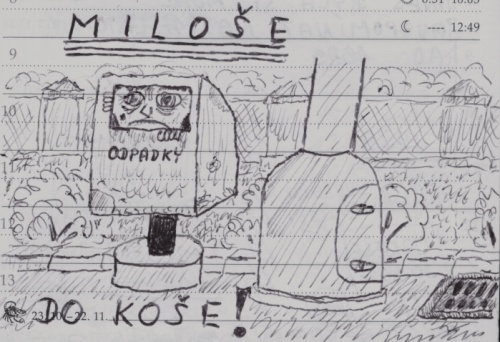 MILOŠE
---- 12:49
9
10
ODPADKY
11
12
13
DO KOŠE!